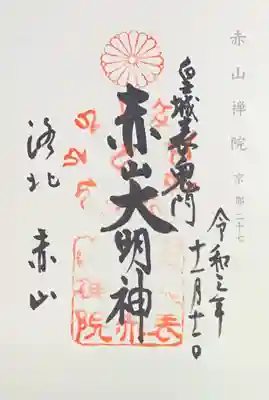 赤山禅院 京都二十七
皇城表鬼門
令和三年
十一月十二日
赤山大明神
洛北 赤山